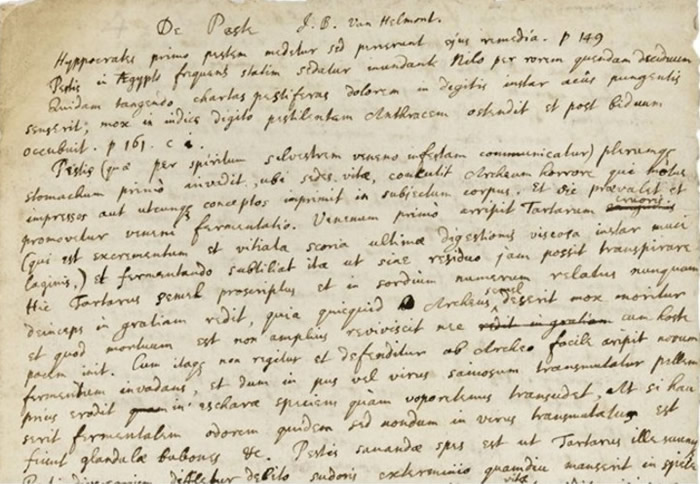 De Peste J. B. Van Helmont.
Hyppocrates primo pestem medetur sed perierunt ejus remedia. p 149
Pestis in Ægypto frequens statim sedatur inundante Nilo per rorem quendam deciduum
Quidam tangendo chartas pestiferas dolorem in digitis instar acûs pungentis
senserit, mox in indice digito pestilentem Anthracem ostendit et post biduum
occubuit. p 161. c
Pestis (quæ per spiritum silvestrem veneno infestam communicatur) plerumqꝫ
stomachum primò invedit, ubi sedes vitæ, concutit Archæum horrore qui motus
impressos aut utcunqꝫ conceptos imprimit in subjectum corpus. Et sic prævalet et
promovetur veneni fermentatio. Venenum primò arripit Tartarum sanguinis cruoris
(qui est excrementum et vitiata scoria ultimæ digestionis viscosa instar muci
laginis,) et fermentando subtiliat ita ut sine residuo jam possit transpirare
Hic Tartarus semel proscriptus et in sordium numerum relatus nunquam
deinceps in gratiam redit, quia quicquid Archeus semel deserit mox moritur
et quod mortuum est non amplius reviviscit nec redit in gratiam cum hoste
pacem init. Cum itaqꝫ non regitur et defenditur ab Archeo facile aripit novum
fermentum invadens, et dum in pus vel virus saniosum transmutatur pellem
prius erodit quam in escharæ speciem quam voporetenus transudet, At si hau
serit fermentalem odorem quidem sed nondum in virus transmutatum est
fiunt glandulæ bubones &c. Pestis sanandæ spes est ut Tartarus ille
debito sudoris exterminio quamdiu manserit in specie
vitæ